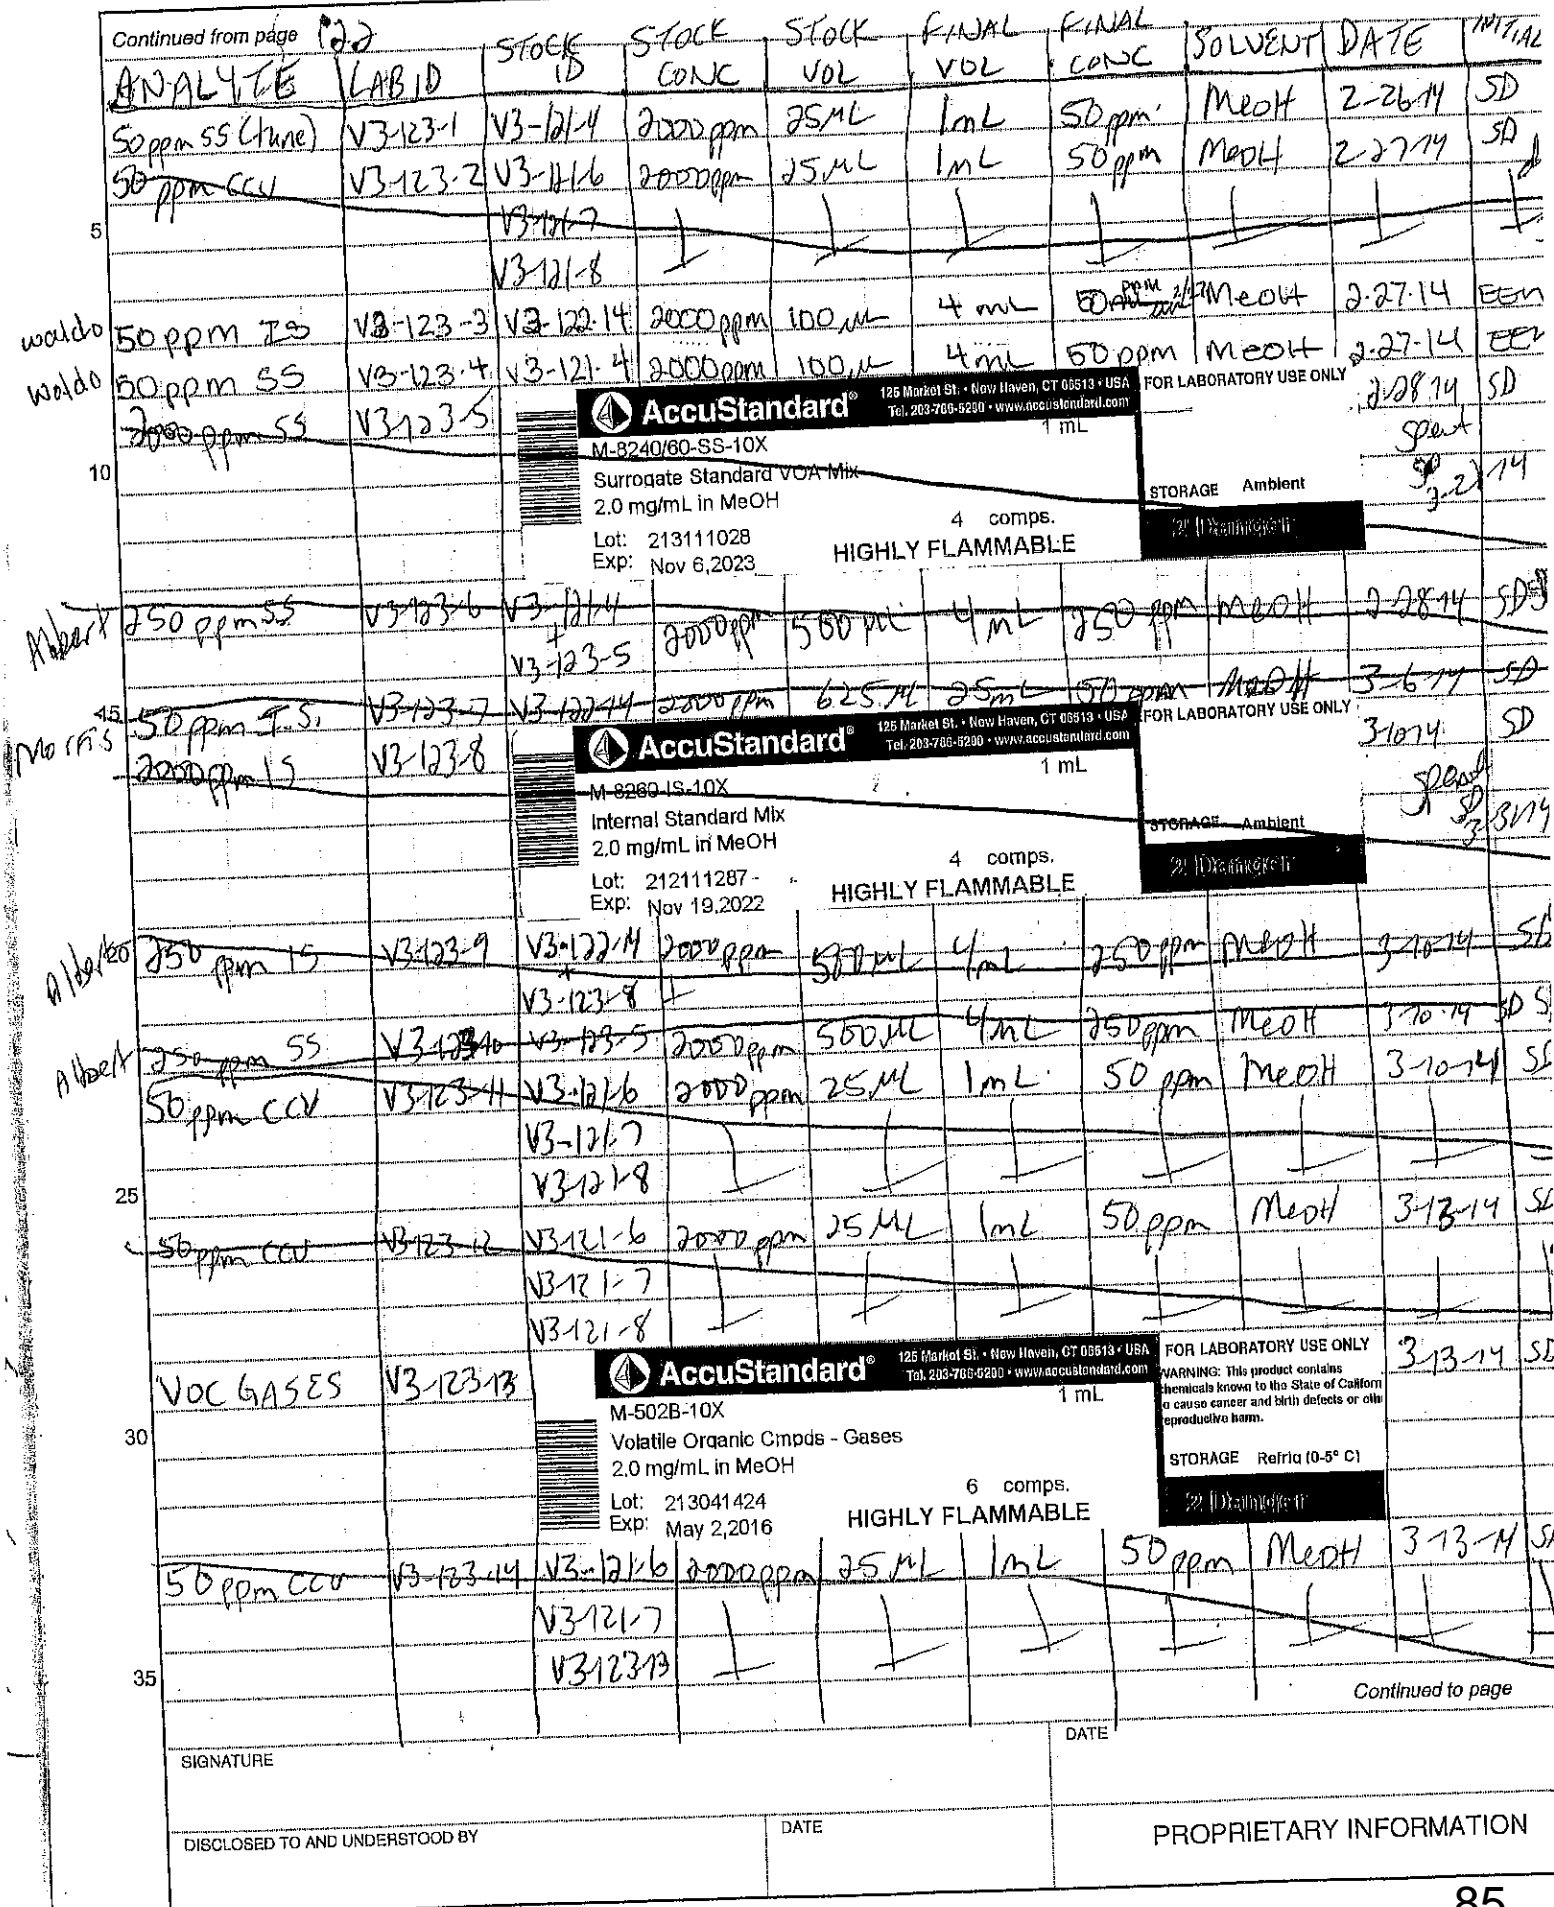 Continued from page 122
ANALYTE LAB ID STOCK ID STOCK CONC STOCK VOL FINAL VOL FINAL CONC SOLVENT DATE INITIAL
50 ppm SS (tune) V3-123-1 V3-121-4 2000 ppm 25 µL 1 mL 50 ppm MeOH 2-26-14 SD
50 ppm CCV V3-123-2 V3-121-6 2000 ppm 25 µL 1 mL 50 ppm MeOH 2-27-14 SD
5 V3-121-7
V3-121-8
waldo 50 ppm IS V3-123-3 V3-122-14 2000 ppm 100 µL 4 mL 50 ppm MeOH 2-27-14 EEN
Waldo 50 ppm SS V3-123-4 V3-121-4 2000 ppm 100 µ 4 mL 50 ppm MeOH 2-27-14
2000 ppm SS V3-123-5 2-28-14 SD
AccuStandard® 125 Market St. • New Haven, CT 06513 • USA FOR LABORATORY USE ONLY
Tel. 203-786-5290 • www.accustandard.com
1 mL spent
M-8240/60-SS-10X
10 Surrogate Standard VOA Mix SD
2.0 mg/mL in MeOH STORAGE Ambient
4 comps. Danger
Lot: 213111028 HIGHLY FLAMMABLE
Exp: Nov 6,2023
Albert 250 ppm SS V3-123-6 V3-121-4 2000 ppm 500 µL 4 mL 250 ppm MeOH 2-28-14 SD
+
V3-123-5
15 50 ppm I.S. V3-123-7 V3-122-14 2000 ppm 625 µL 25 mL 50 ppm MeOH 3-6-14 SD
Morris
2000 ppm IS V3-123-8 3-10-14 SD
AccuStandard® 125 Market St. • New Haven, CT 06513 • USA FOR LABORATORY USE ONLY
Tel. 203-786-5290 • www.accustandard.com
1 mL spent
M-8260-IS-10X SD
Internal Standard Mix STORAGE Ambient
2.0 mg/mL in MeOH
4 comps. Danger
Lot: 212111287 HIGHLY FLAMMABLE
Exp: Nov 19,2022
Albert 20 250 ppm IS V3-123-9 V3-122-14 2000 ppm 500 µL 4 mL 250 ppm MeOH 3-10-14
+
V3-123-8
Albert 250 ppm SS V3-123-10 V3-123-5 2000 ppm 500 µL 4 mL 250 ppm MeOH 3-10-14 SD
50 ppm CCV V3-123-11 V3-121-6 2000 ppm 25 µL 1 mL 50 ppm MeOH 3-10-14
V3-121-7
25 V3-121-8
50 ppm CCV V3-123-12 V3-121-6 2000 ppm 25 µL 1 mL 50 ppm MeOH 3-13-14
V3-121-7
V3-121-8
VOC GASES V3-123-13 3-13-14
AccuStandard® 125 Market St. • New Haven, CT 06513 • USA FOR LABORATORY USE ONLY
Tel. 203-786-5290 • www.accustandard.com
WARNING: This product contains
chemicals known to the State of Californ
cause cancer and birth defects or
eproductive harm.
1 mL
M-502B-10X
30 Volatile Organic Cmpds - Gases
2.0 mg/mL in MeOH STORAGE Refrig (0-5° C)
6 comps. Danger
Lot: 213041424 HIGHLY FLAMMABLE
Exp: May 2,2016
50 ppm CCV V3-123-14 V3-121-6 2000 ppm 25 µL 1 mL 50 ppm MeOH 3-13-14
V3-121-7
35 V3-123-13
Continued to page
SIGNATURE DATE
DISCLOSED TO AND UNDERSTOOD BY DATE PROPRIETARY INFORMATION
85